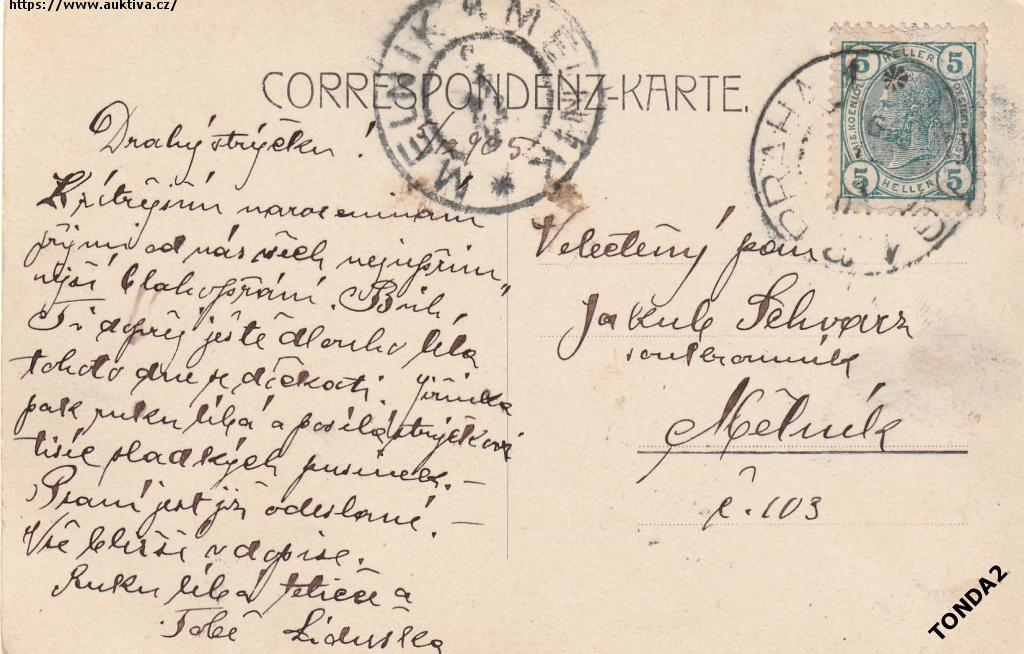 https://www.auktiva.cz/
CORRESPONDENZ-KARTE.
MĚLNÍK * MELNIK *
5 HELLER 5
5 HELLER 5
PRAHA
Drahý strýčku!
1905
K zítřejším narozeninám
přijmi od nás všech nejupřím„
nější blahopřání. Bůh
Ti dopřej ještě dlouho léta
tohoto dne se dočkati. Jiřinka
pak ruku líbá a posílá strýčkovi
tisíc sladkých pusinek. –
Psaní jest již odeslané. –
Vše bližší v dopise.
Ruku líbá tetičce a
Tobě Liduška
Velectěný pan
Jakub Schvarz
soukromník
Mělník
č. 103
TONDA2